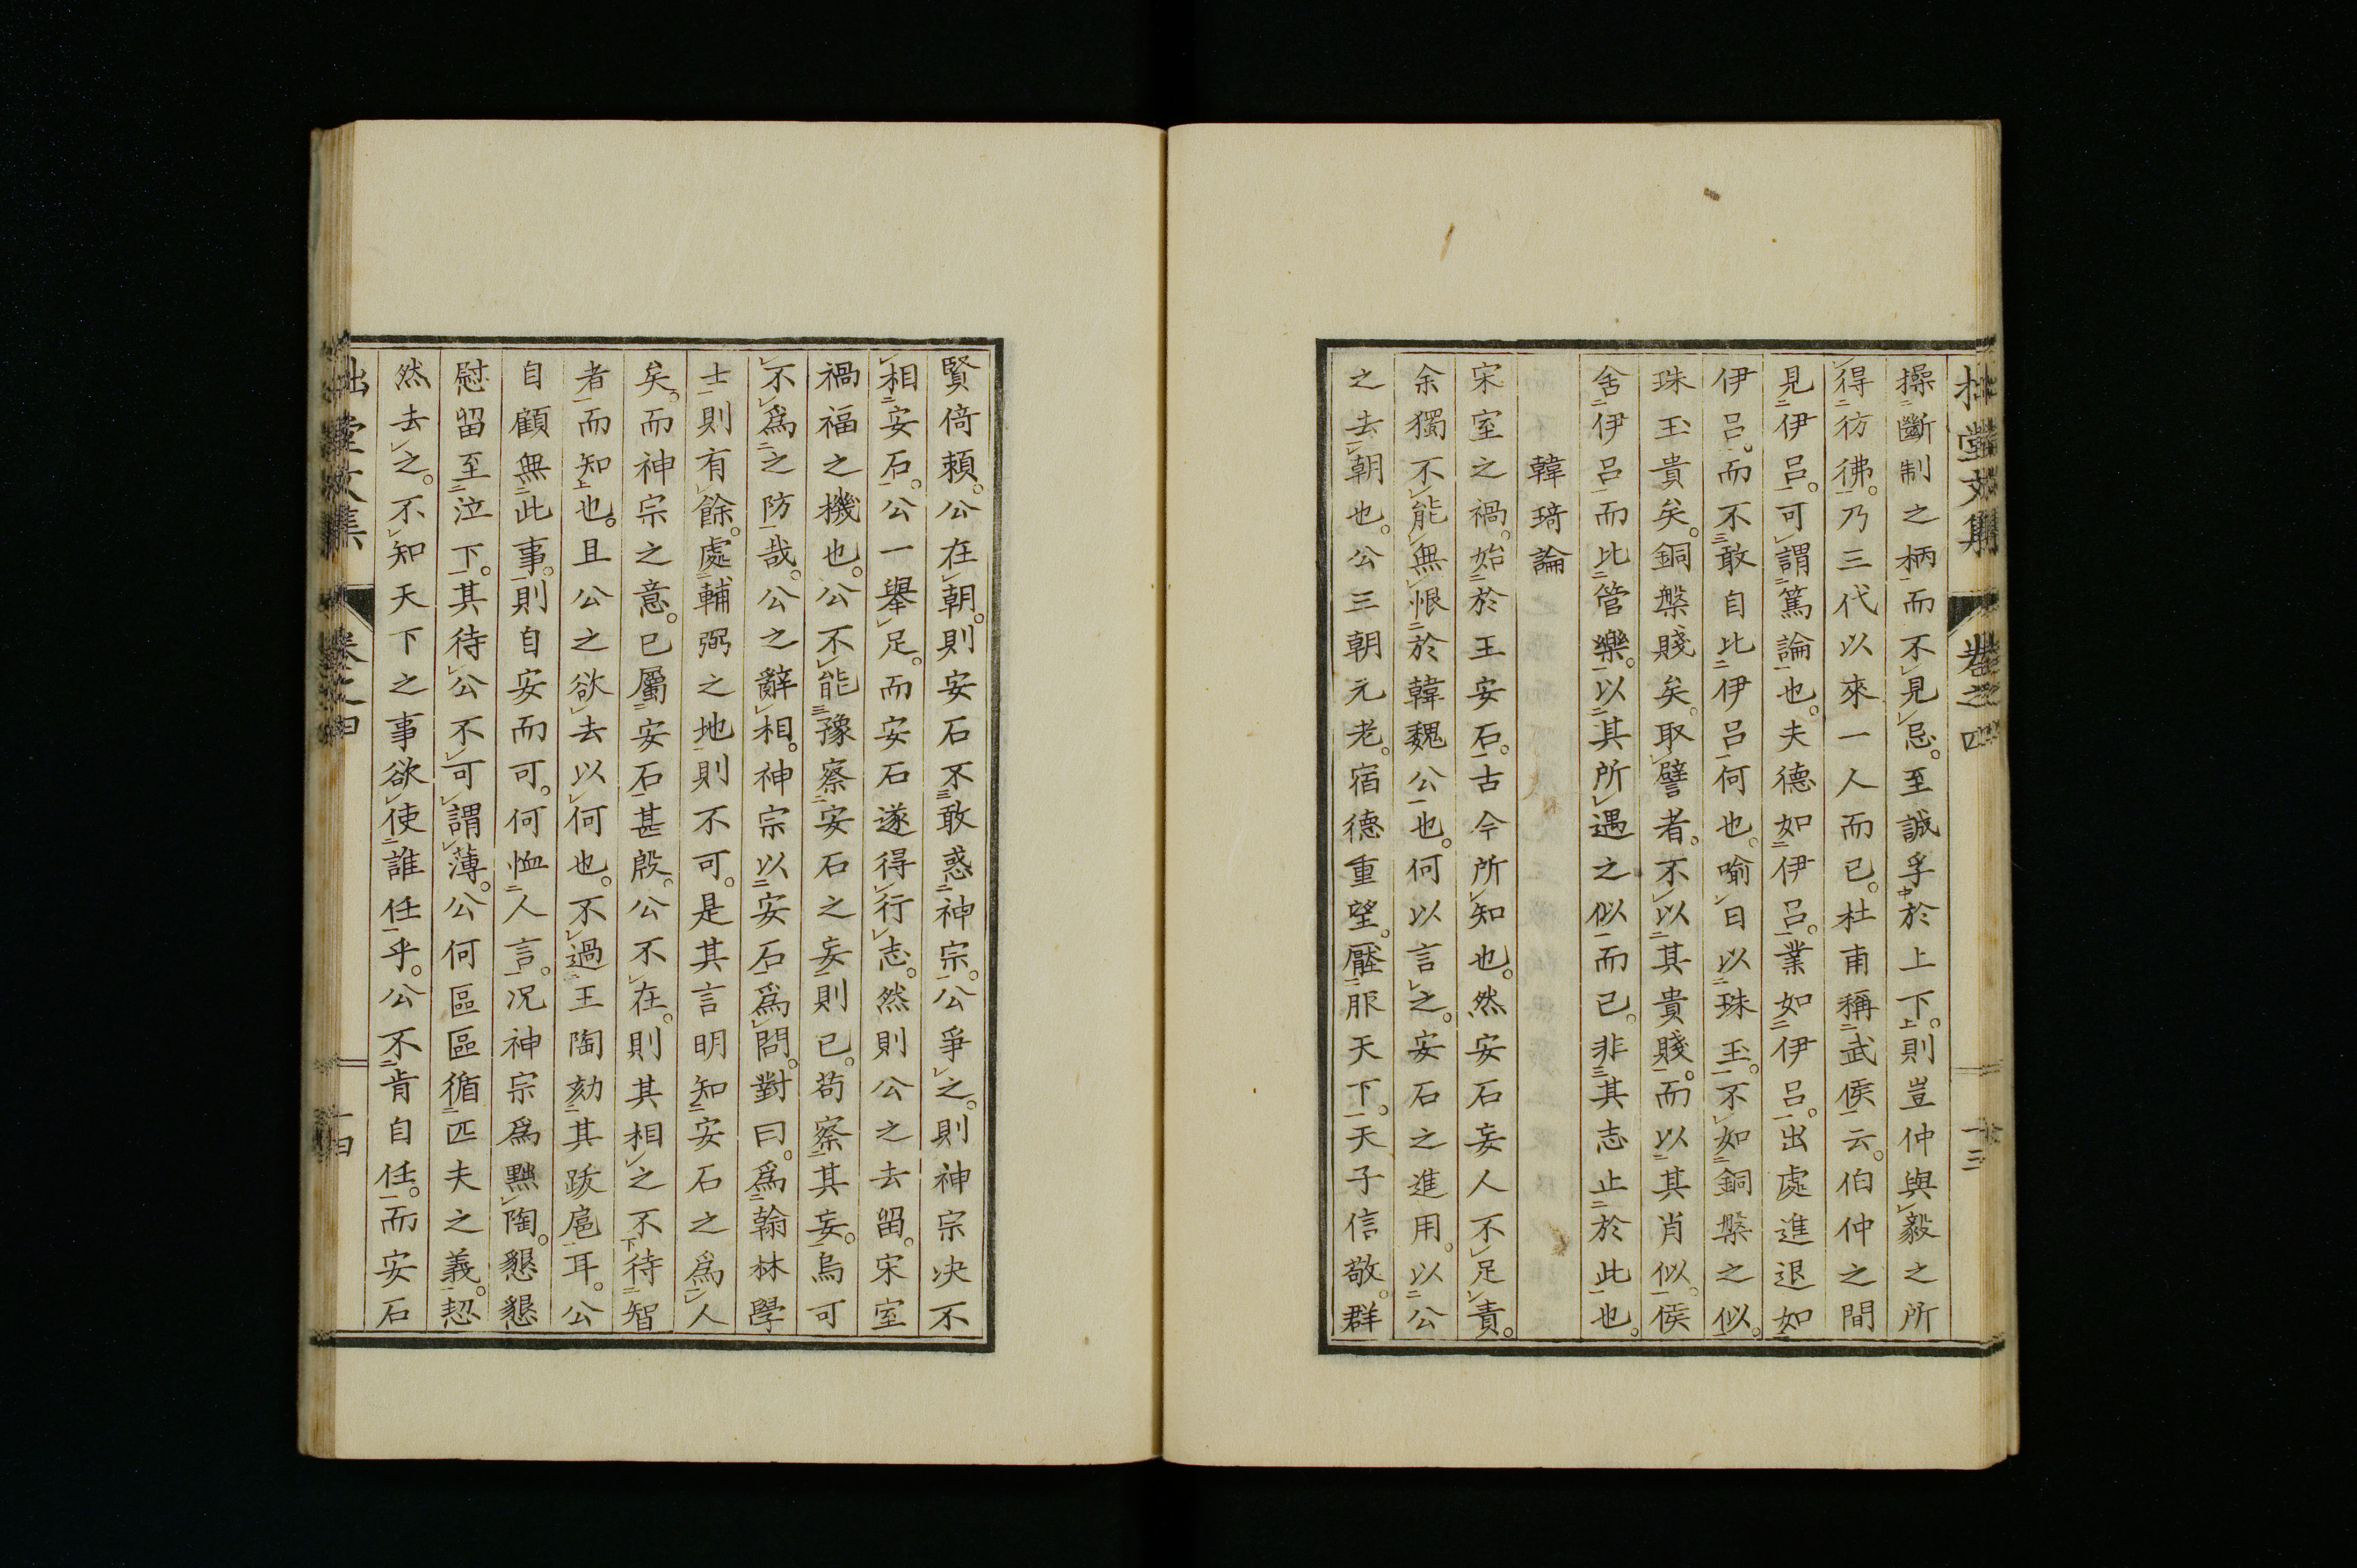 拙堂文集 卷之四 十三
操斷制之柄而不見忌。至誠孚於上下。則豈仲與毅之所
得彷彿。乃三代以來一人而已。杜甫稱武侯云。伯仲之間
見伊呂。可謂篤論也。夫德如伊呂。業如伊呂。出處進退如
伊呂。而不敢自比伊呂何也。喻曰以珠玉。不如銅槃之似。
珠玉貴矣。銅槃賤矣。取譬者。不以其貴賤。而以其肖似。侯
舍伊呂而比管樂。以其所遇之似而已。非其志止於此也。
韓琦論
宋室之禍。始於王安石。古今所知也。然安石妄人不足責。
余獨不能無恨於韓魏公也。何以言之。安石之進用。以公
之去朝也。公三朝元老。宿德重望。壓服天下。天子信敬。群
賢倚賴。公在朝。則安石不敢惑神宗。公爭之。則神宗決不
相安石。公一擧足。而安石遂得行志。然則公之去留。宋室
禍福之機也。公不能豫察安石之妄則已。苟察其妄。烏可
不爲之防哉。公之辭相。神宗以安石爲問。對曰。爲翰林學
士則有餘。處輔弼之地則不可。是其言明知安石之爲人
矣。而神宗之意。已屬安石甚殷。公不在。則其相之不待智
者而知也。且公之欲去以何也。不過王陶劾其跋扈耳。公
自顧無此事。則自安而可。何恤人言。況神宗爲黜陶。懇懇
慰留至泣下。其待公不可謂薄。公何區區循匹夫之義。恝
然去之。不知天下之事欲使誰任乎。公不肯自任。而安石
拙堂文集 卷之四 十四